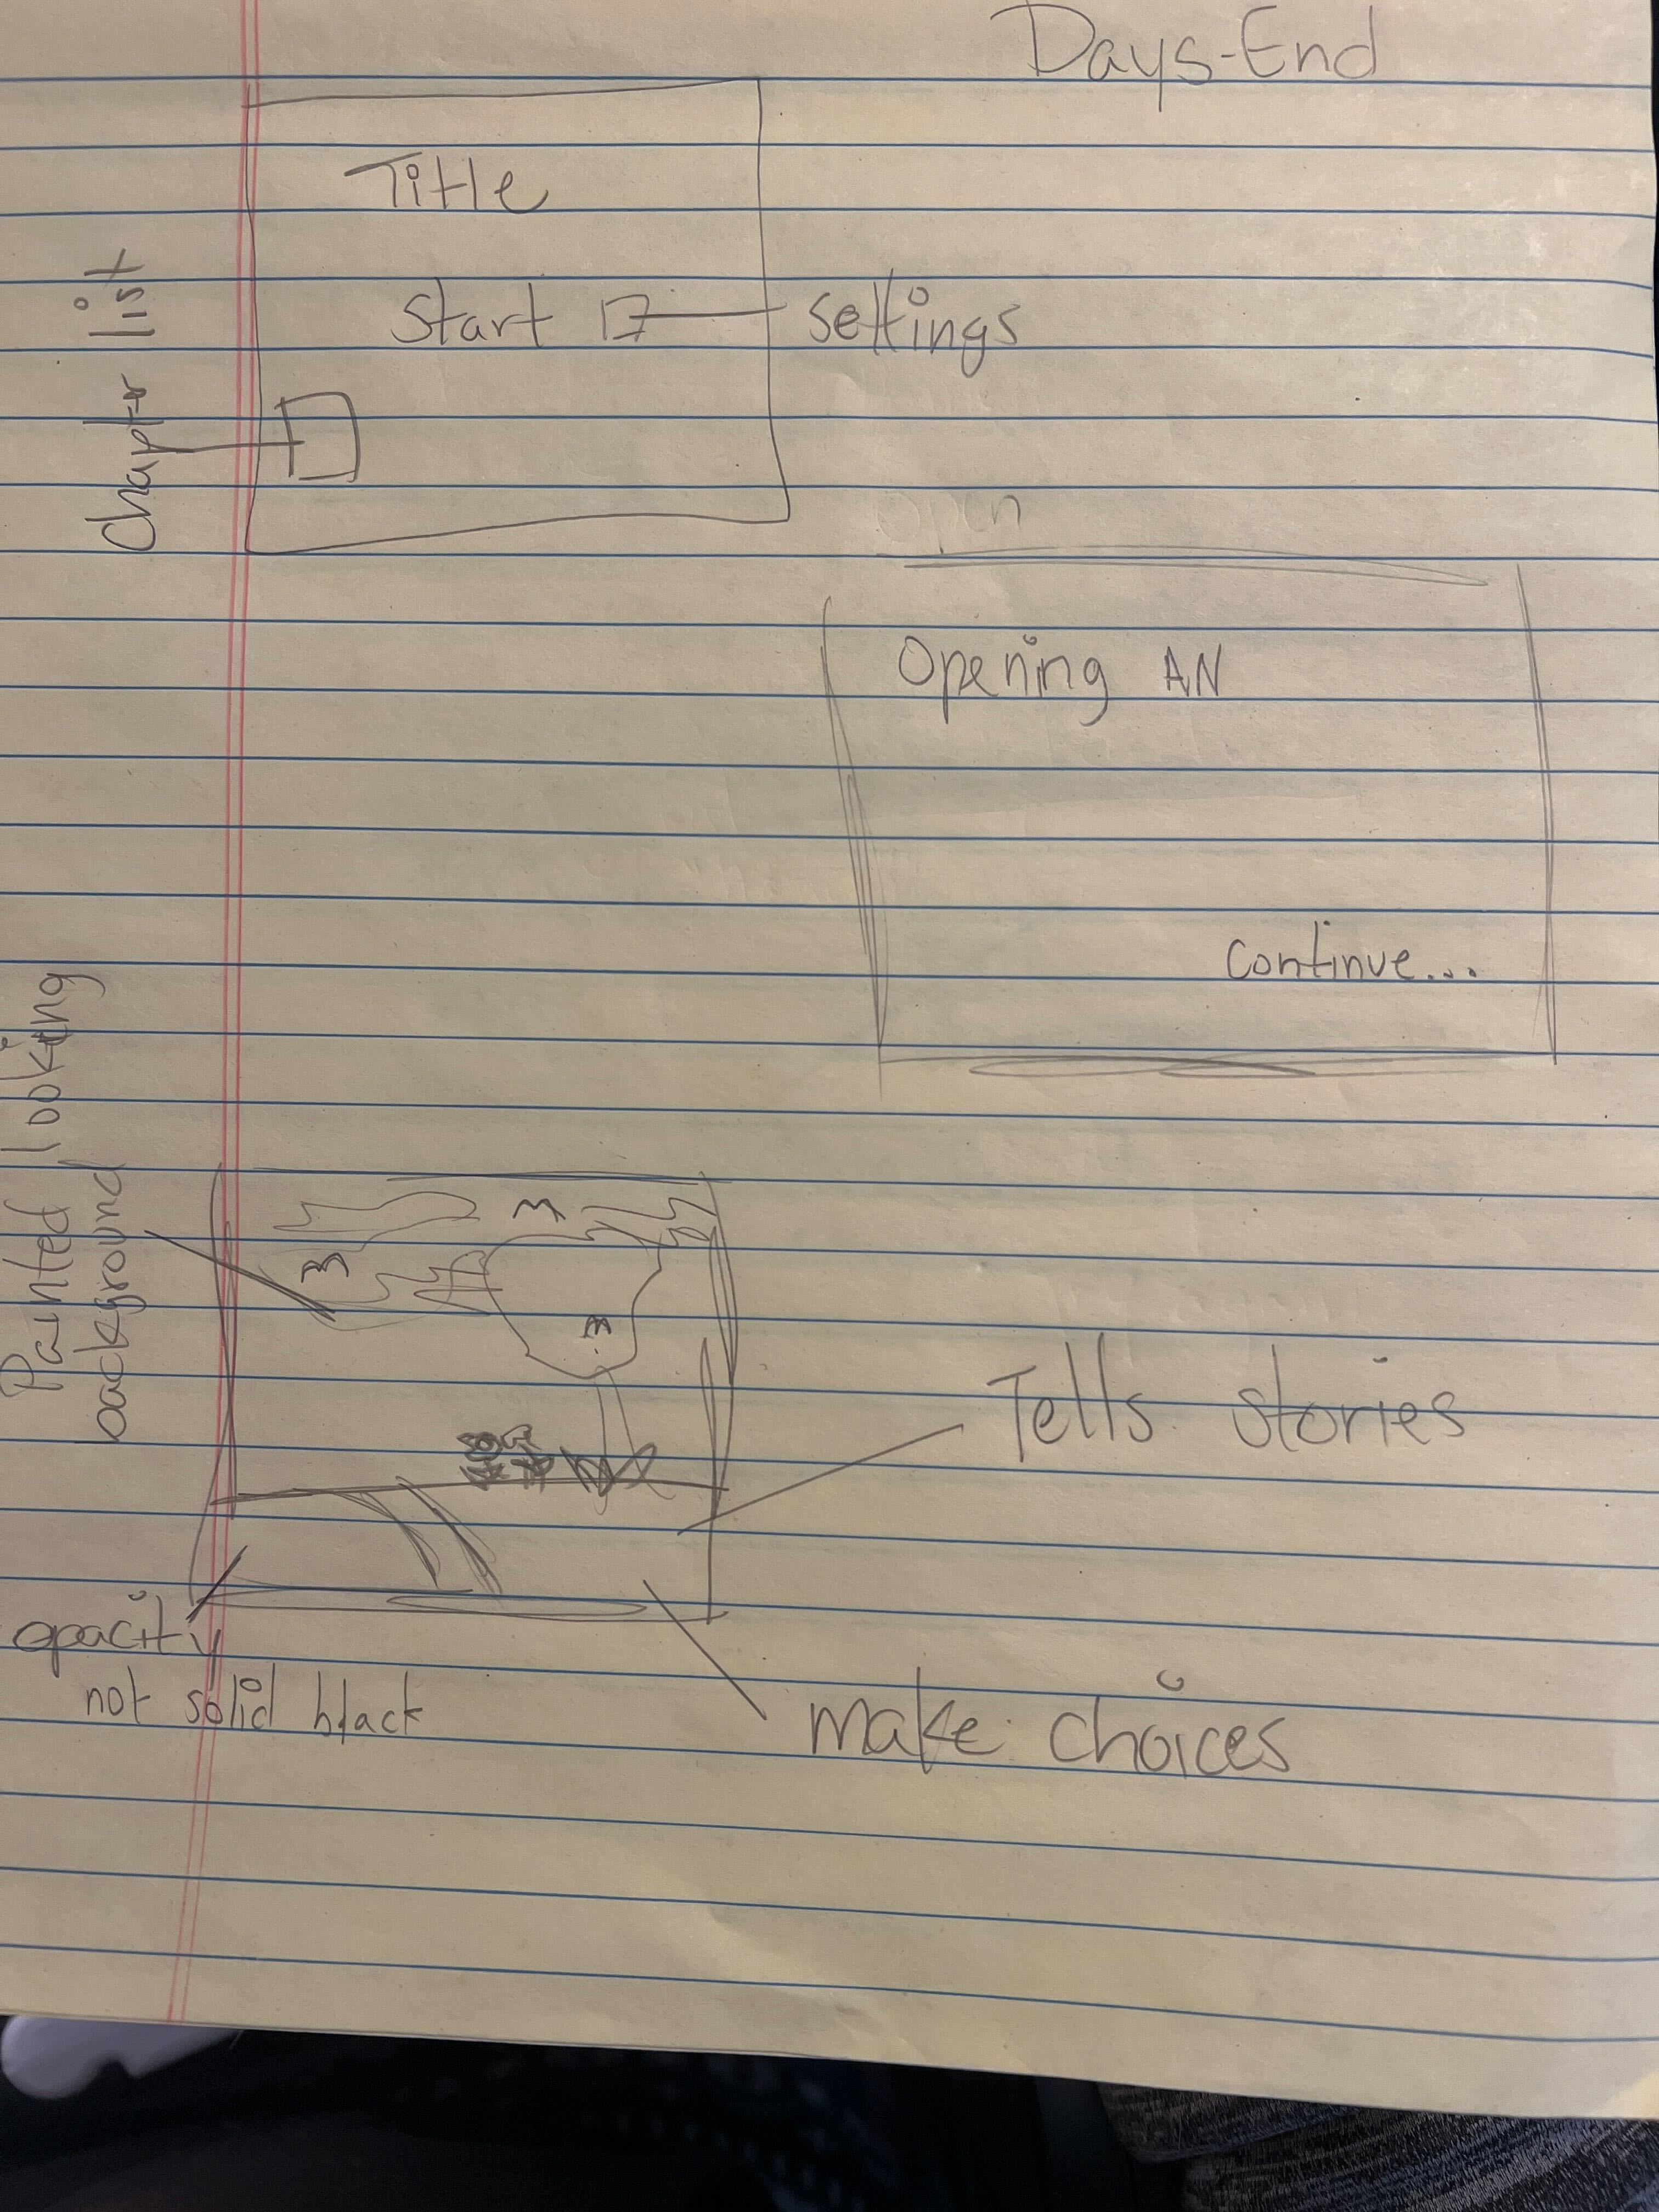 Days-End
Title
Start
settings
Chapter list
Open
Opening AN
Continue...
Painted looking
background
Tells stories
opacity
not solid black
make choices